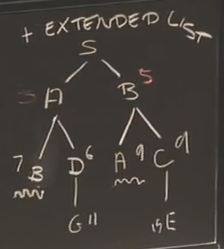 + EXTENDED LIST
S
5 A B 5
7 B D 6 A 9 C 9
G 11 15 E